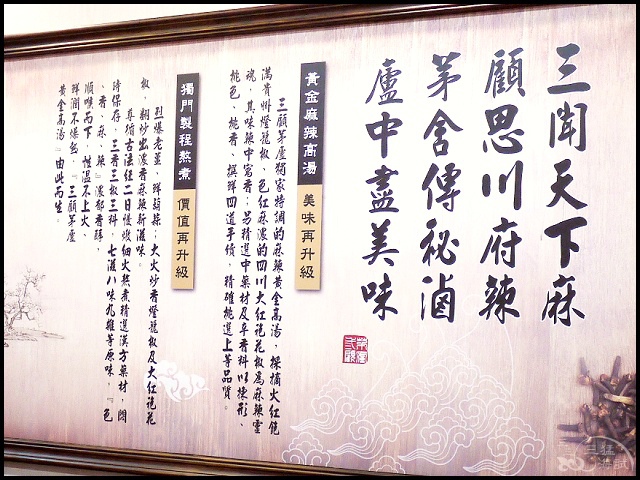 三聞天下麻
顧思川府辣
茅舍傳秘滷
廬中盡美味
黃金麻辣高湯
美味再升級
三顧茅廬獨家特調的麻辣黃金高湯，採摘火紅飽
滿貴州燈籠椒、色紅麻濃的四川大紅袍花椒為麻辣靈
魂，其味辣中富香；另精選中藥材及辛香料以揀形、
挑色、挑香、撰鮮四道手續，精確挑選上等品質。
獨門製程熬煮
價值再升級
烈爆老薑、鮮蒜蒜；大火炒香燈籠椒及大紅袍花
椒，翻炒出濃香麻辣新滋味。
尊循古法經二日慢燉細火熬煮精選漢方藥材，開
時保存，三香三椒三料，七滋八味九雜等原味，『色
、香、麻、辣』濃郁香醇，
順喉而下，性溫不上火、
鮮潤不燥熱，『三顧茅廬
黃金高湯』由此而生。
三猛
海賊